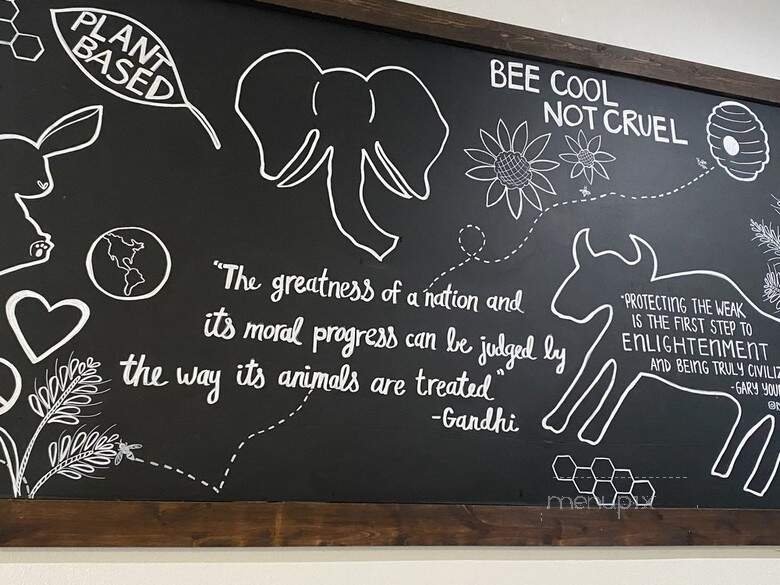 PLANT
BASED
BEE COOL
NOT CRUEL
"The greatness of a nation and
its moral progress can be judged by
the way its animals are treated"
-Gandhi
"PROTECTING THE WEAK
IS THE FIRST STEP TO
ENLIGHTENMENT
AND BEING TRULY CIVILIZ
-GARY YOU
menupix